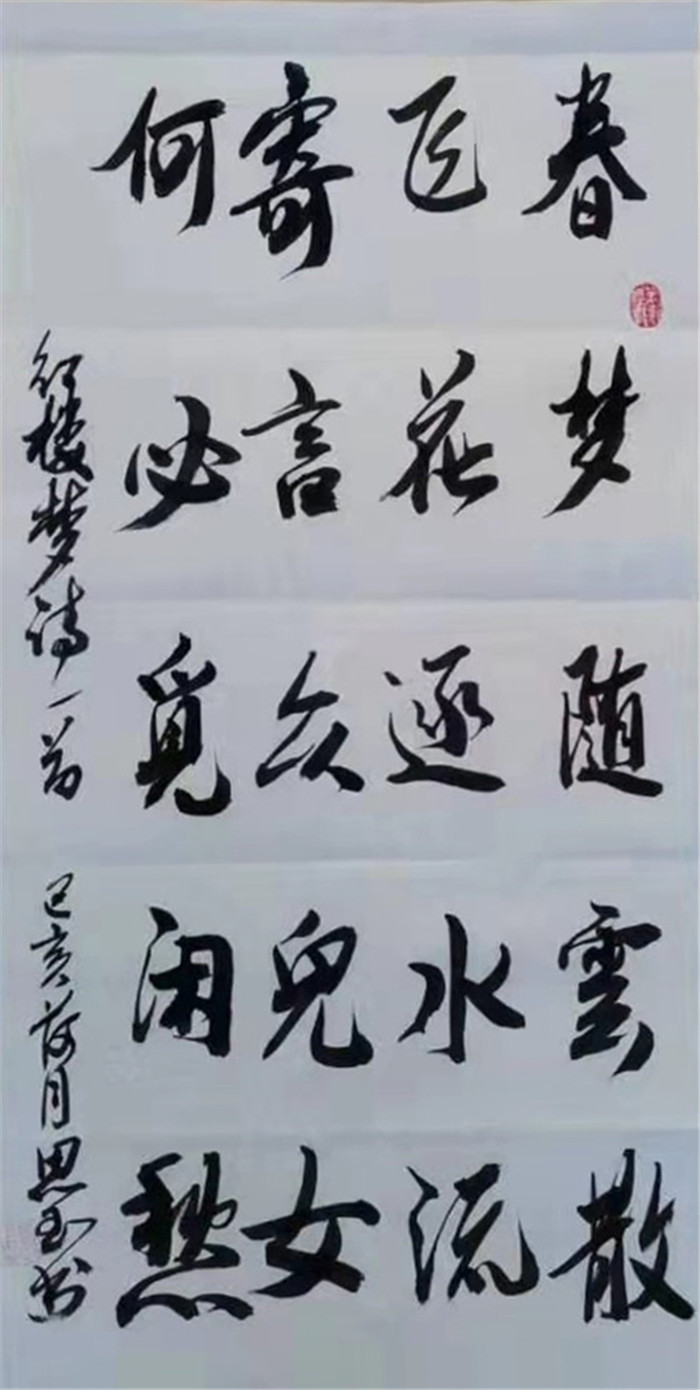 春梦随雲散
飞花逐水流
寄言众兒女
何必覓闲愁
红楼梦诗一首 己亥荷月思玉书